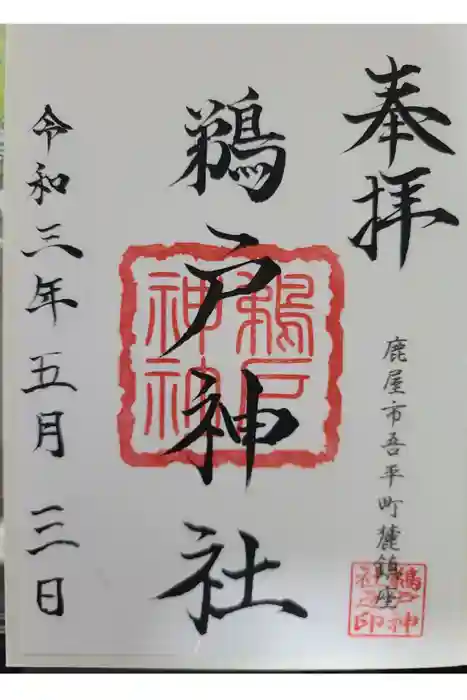 奉拝
鹿屋市吾平町麓鎮座
鵜戸神社
令和三年五月三日
鵜戸神
社之印